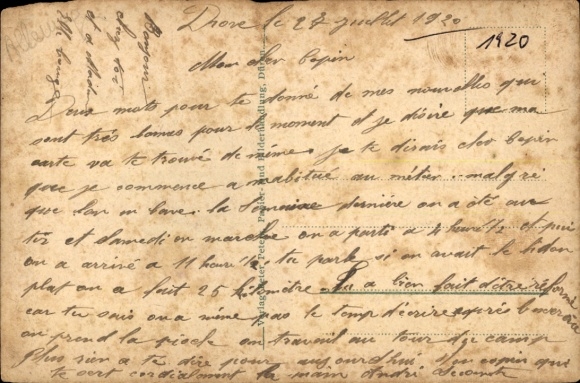 Drove le 27 juillet 1920
1920
Mon cher Copin
Deux mots pour te donné de mes nouvelles qui
sont trés bonnes pour le moment et je désire que ma
carte va te trouvé de même. je te dirais cher Copin
que je commence a mabitué au métier. malgré
que l'on en bave. la semaine dernière on a été au
tir et samedi en marche on a parti a heur 1/2 et puis
on a arrivé a 11 heur 1/2 tu parle si on avait le bidon
plat on a fait 25 kilomètre. Tu a bien fait d'être réformé
car tu sais on a même pas le temp d'écrire après l'exercice
on prend la pioche on travail au tour du camp
Plus rien a te dire pour aujourd'hui. Ton copin qui
te sert cordialement la main André
Bonjour
chez toi
et a
Verlag Peter Peters, Papier- und Bilderhandlung, Düren.